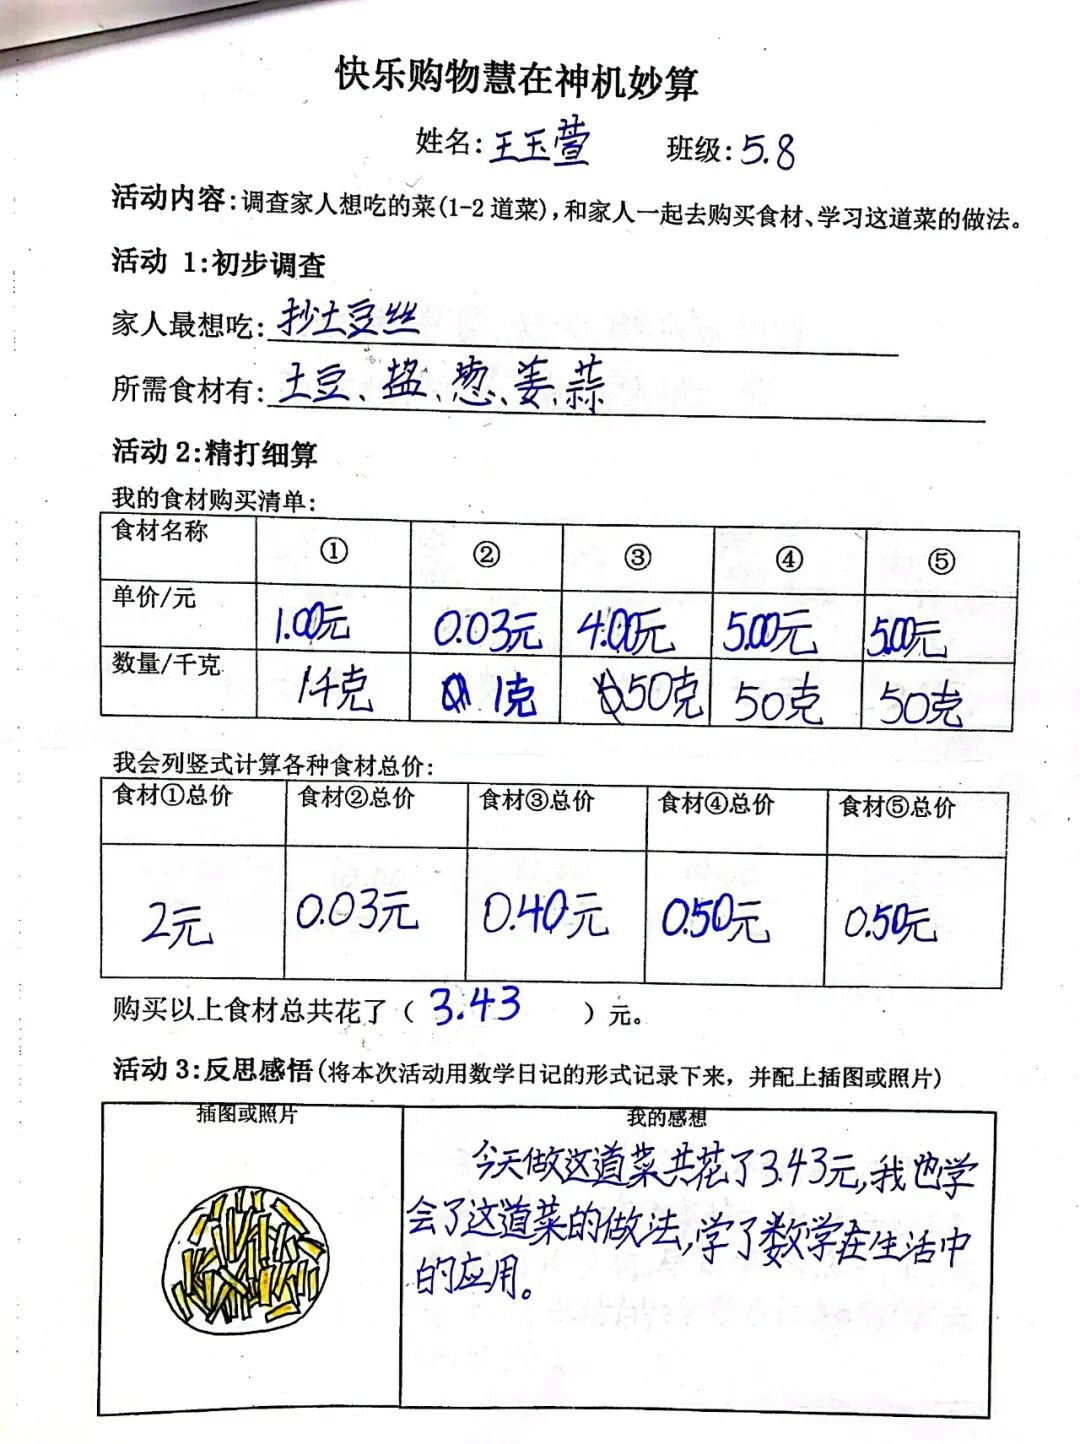 快乐购物慧在神机妙算
姓名:王玉萱 班级:5.8
活动内容:调查家人想吃的菜(1-2道菜),和家人一起去购买食材、学习这道菜的做法。
活动 1:初步调查
家人最想吃:抄土豆丝
所需食材有:土豆、盐、葱、姜、蒜
活动 2:精打细算
我的食材购买清单:
食材名称 ① ② ③ ④ ⑤
单价/元 1.00元 0.03元 4.00元 5.00元 5.00元
数量/千克 1千克 1克 50克 50克 50克
我会列竖式计算各种食材总价:
食材①总价 食材②总价 食材③总价 食材④总价 食材⑤总价
2元 0.03元 0.40元 0.50元 0.50元
购买以上食材总共花了( 3.43 )元。
活动 3:反思感悟(将本次活动用数学日记的形式记录下来，并配上插图或照片)
插图或照片 我的感想
今天做这道菜共花了3.43元,我也学
会了这道菜的做法,学了数学在生活中
的应用。